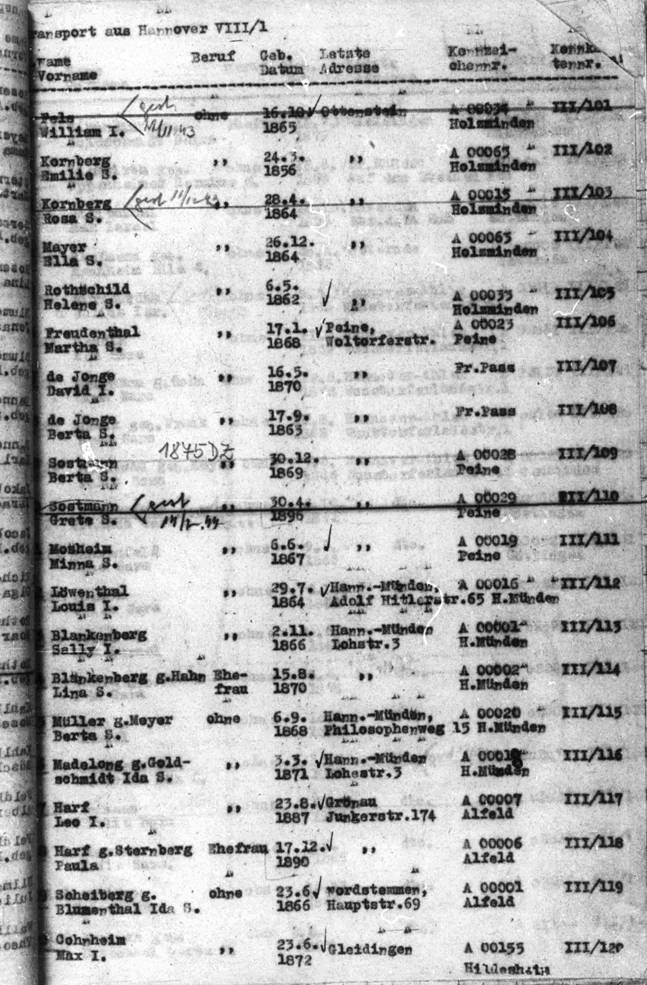 ransport aus Hannover VIII/1
Name Beruf Geb. Letzte Kennzei- Kennka
Vorname Datum Adresse chennr. tennr.
Fels gest. ohne 16.10. Ottenstein A 00034 III/101
William I. 12/11.43 1865 Holzminden
Kornberg ,, 24.3. ,, A 00065 III/102
Emilie S. 1856 Holzminden
Kornberg gest ,, 28.4. ,, A 00015 III/103
Rosa S. 1864 Holzminden
Mayer ,, 26.12. ,, A 00063 III/104
Ella S. 1864 Holzminden
Rothschild ,, 6.5. ,, A 00033 III/105
Helene S. 1862 Holzminden
Freudenthal ,, 17.1. Peine, A 00023 III/106
Martha S. 1868 Woltorferstr. Peine
de Jonge ,, 16.5. ,, Fr.Pass III/107
David I. 1870
de Jonge ,, 17.9. ,, Fr.Pass III/108
Berta S. 1863
1875 DZ
Sostmann ,, 30.12. ,, A 00028 III/109
Berta S. 1869 Peine
Sostmann gest ,, 30.4. ,, A 00029 III/110
Grete S. 1896 Peine
Mosheim ,, 6.6. ,, A 00019 III/111
Minna S. 1867 Peine
Löwenthal ,, 29.7. Hann.-Münden, A 00016 III/112
Louis I. 1864 Adolf Hitlerstr.65 H.Münden
Blankenberg ,, 2.11. Hann.-Münden A 00001 III/113
Sally I. 1866 Lohstr.3 H.Münden
Blankenberg g.Hahn Ehe- 15.8. ,, A 00002 III/114
Lina S. frau 1870 H.Münden
Müller g.Meyer ohne 6.9. Hann.-Münden, A 00020 III/115
Berta S. 1868 Philosophenweg 15 H.Münden
Madelong g.Gold- ,, 3.3. Hann.-Münden III/116
schmidt Ida S. 1871 Lohestr.3 H.Münden
Harf ,, 23.8. Gronau A 00007 III/117
Leo I. 1887 Junkerstr.174 Alfeld
Harf g.Sternberg Ehefrau 17.12. ,, A 00006 III/118
Paula 1890 Alfeld
Scheiberg g. ohne 23.6. Nordstemmen, A 00001 III/119
Blumenthal Ida S. 1866 Hauptstr.69 Alfeld
Cohnheim ,, 23.6. Gleidingen A 00155 III/120
Max I. 1872 Hildesheim